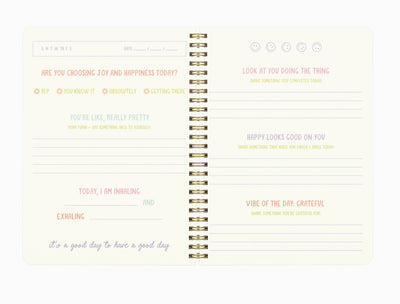 DATE ___/___/___
ARE YOU CHOOSING JOY AND HAPPINESS TODAY?
YEP YOU KNOW IT ABSOLUTELY GETTING THERE
YOU'RE LIKE, REALLY PRETTY
YOUR TURN - SAY SOMETHING NICE TO YOURSELF!
TODAY, I AM INHALING
AND
EXHALING
it's a good day to have a good day
LOOK AT YOU DOING THE THING
SHARE SOMETHING YOU COMPLETED TODAY.
HAPPY LOOKS GOOD ON YOU
SHARE SOMETHING THAT MADE YOU SMILE TODAY.
VIBE OF THE DAY: GRATEFUL
SHARE SOMETHING YOU'RE GRATEFUL FOR.